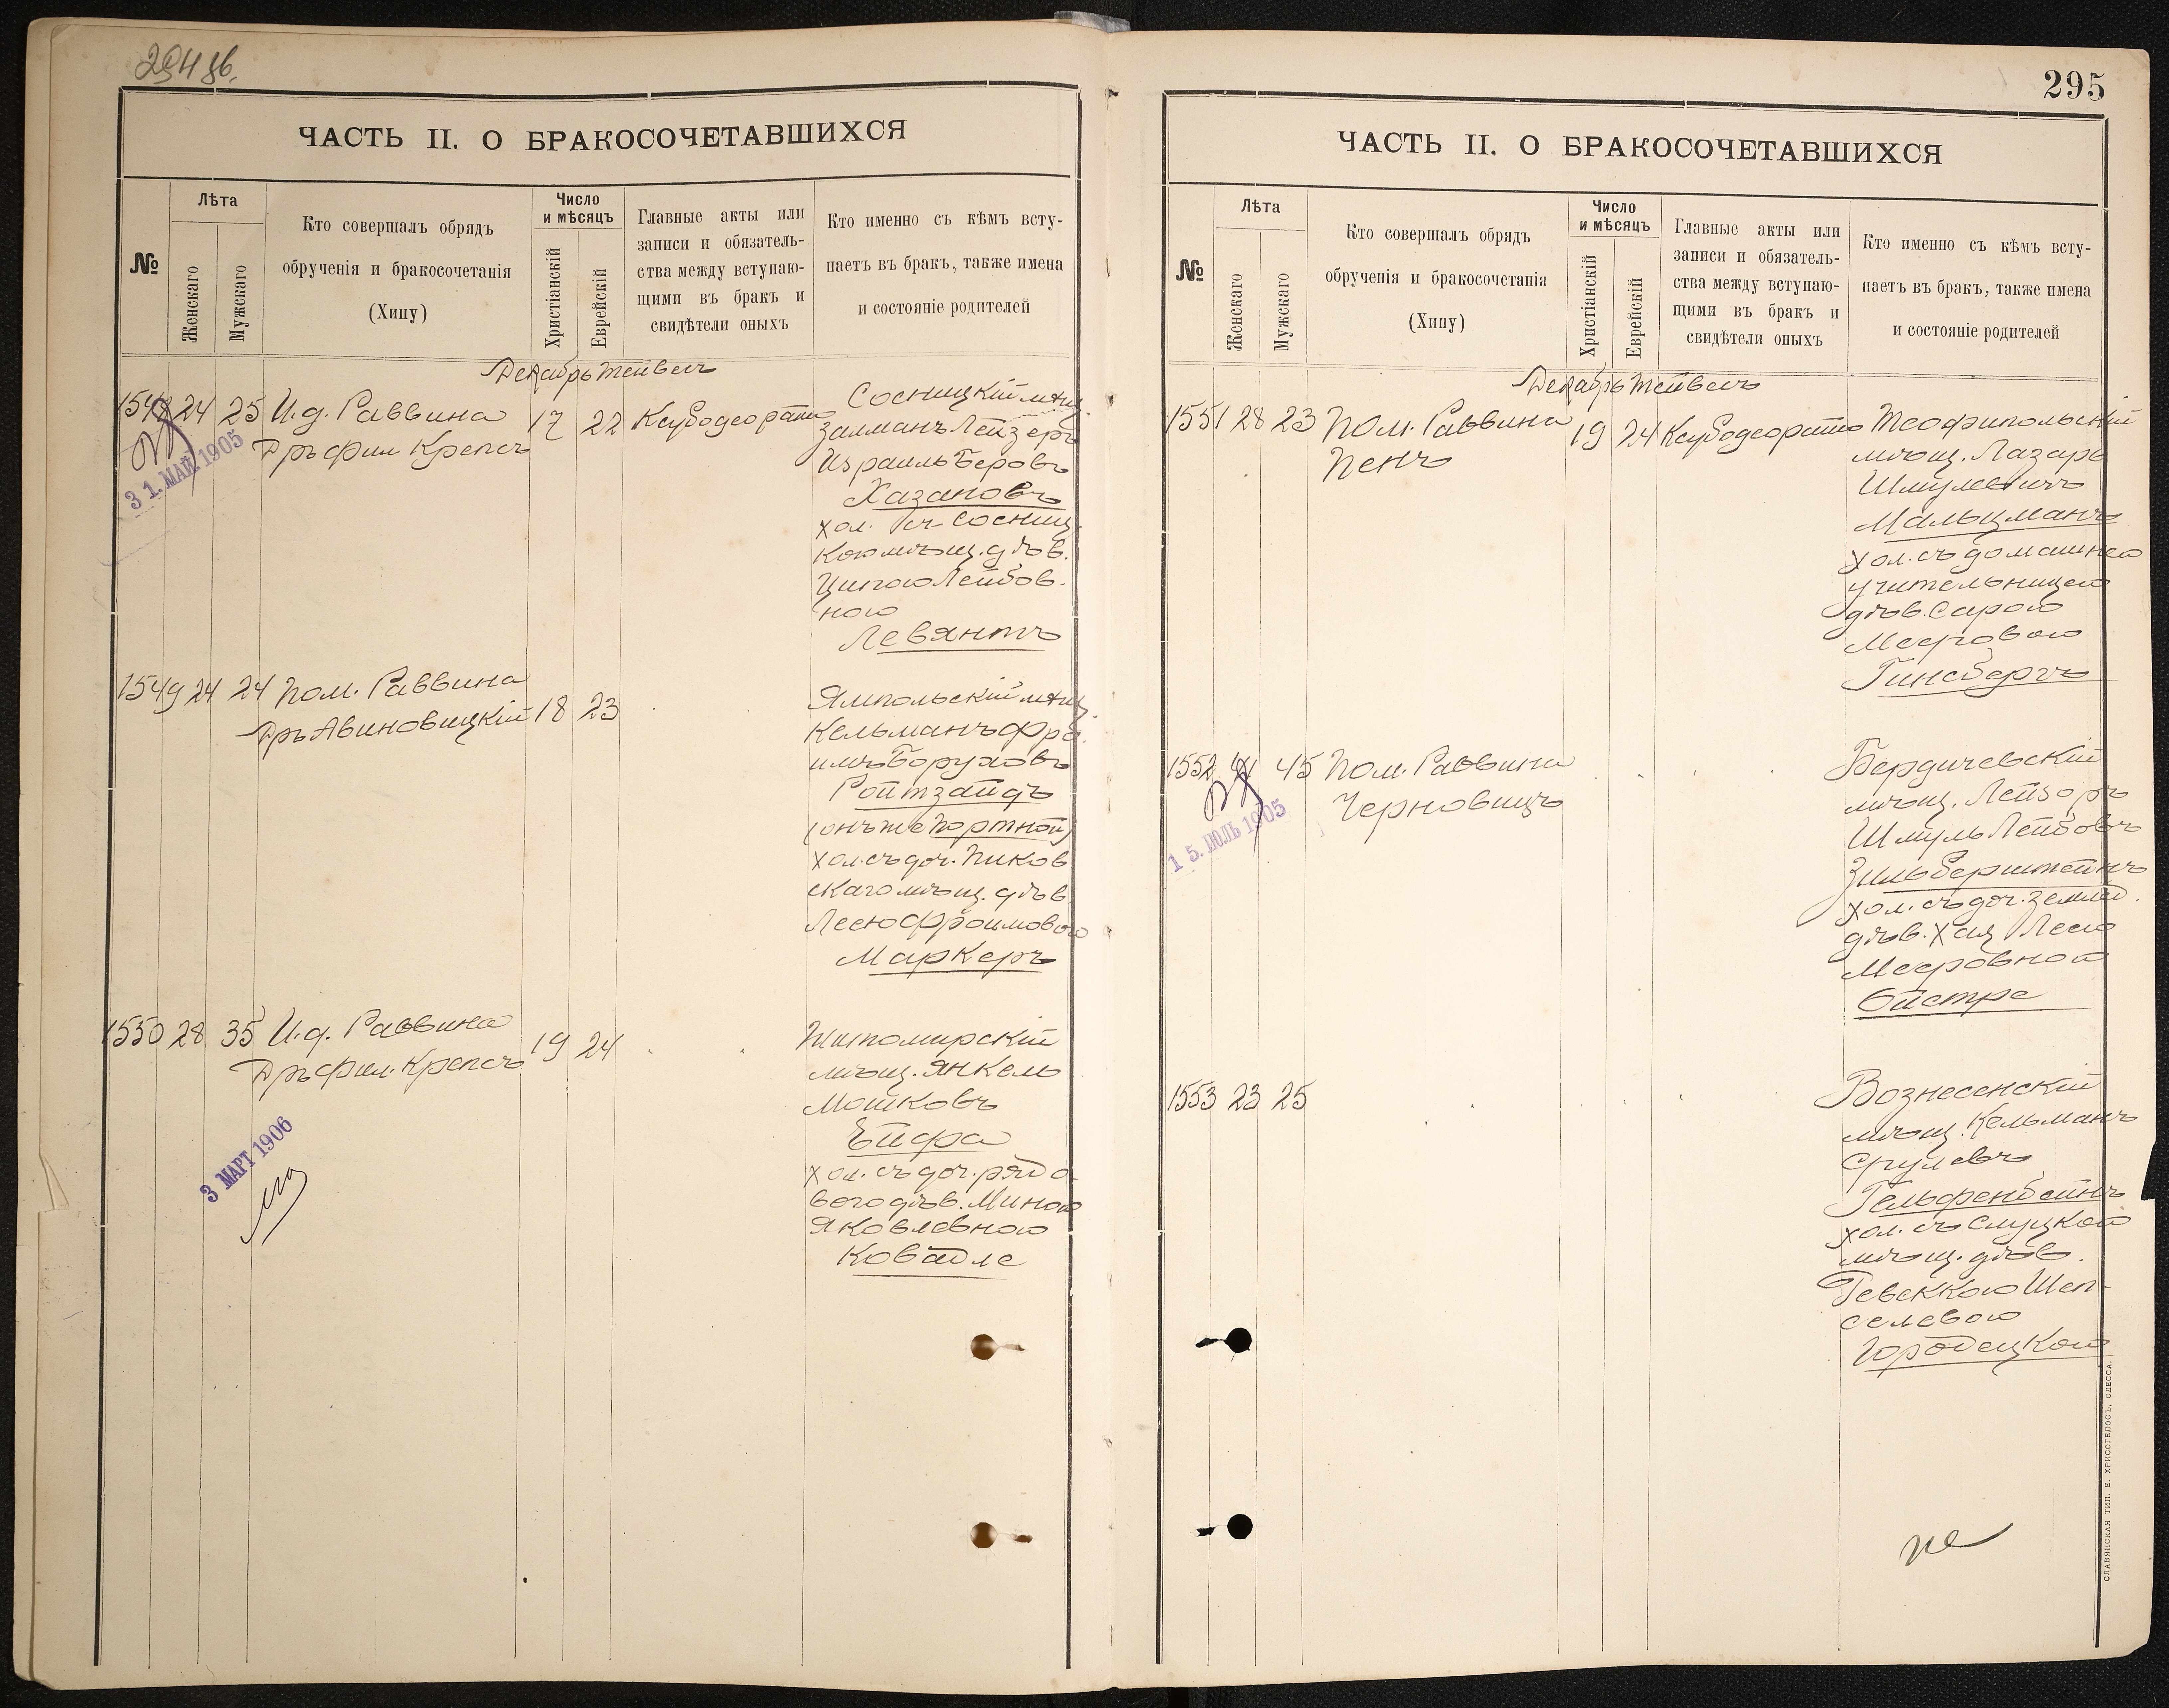 295
ЧАСТЬ II. О БРАКОСОЧЕТАВШИХСЯ
№
Лѣта
Женскаго
Мужскаго
Кто совершалъ обрядъ
обрученія и бракосочетанія
(Хипу)
Число
и мѣсяцъ
Христіанскій
Еврейскій
Главные акты или
записи и обязатель-
ства между вступаю-
щими въ бракъ и
свидѣтели оныхъ
Кто именно съ кѣмъ всту-
паетъ въ бракъ, также имена
и состояніе родителей
Декабрь Тейвесъ
1548 24 25 И.д. Раввина
Дръ фил Крепсъ
17 22
31. МАЙ 1905
Сосницкій мѣщ.
Залманъ Лейзеръ
Израиль Беровъ
Хазановъ
хол. съ Сосниц.
кою мѣщ. дѣв.
Ципою Лейбов-
ною
Левянтъ
1549 24 24 Пом. Раввина
Дръ Авиновицкій 18 23
Ямпольскій мѣщ.
Кельманъ Фро-
имъ Боруховъ
Ройтзайдъ
(онъ же Портной)
хол. съ доч. Пиков
скаго мѣщ. дѣв.
Лесею Фроимовою
Маркеръ
1550 28 35 И.д. Раввина
Дръ фил. Крепсъ 19 24
3 МАРТ 1906
Житомирскій
мѣщ. Янкель
Мошковъ
Ейфа
хол. съ доч. рядо-
вого дѣв. Миною
Яковлевною
Ковадле
ЧАСТЬ II. О БРАКОСОЧЕТАВШИХСЯ
№
Лѣта
Женскаго
Мужскаго
Кто совершалъ обрядъ
обрученія и бракосочетанія
(Хипу)
Число
и мѣсяцъ
Христіанскій
Еврейскій
Главные акты или
записи и обязатель-
ства между вступаю-
щими въ бракъ и
свидѣтели оныхъ
Кто именно съ кѣмъ всту-
паетъ въ бракъ, также имена
и состояніе родителей
Декабрь Тейвесъ
1551 28 23 Пом. Раввина
Пенъ
19 24
Теофипольскій
мѣщ. Лазарь
Шмулевичъ
Мальцманъ
хол. съ домашнею
учительницею
дѣв. Сарою
Мееровою
Гинсбергъ
1552 45 Пом. Раввина
Черновицъ
15. ІЮЛЬ 1905
Бердичевскій
мѣщ. Лейзоръ
Шмуль Лейбовъ
Зильберштейнъ
хол. съ доч. землед.
дѣв. Хая Лесею
Мееровною
Ойстре
1553 23 25
Вознесенскій
мѣщ. Кельманъ
Срулевъ
Гельфенбейнъ
хол. съ Слуцкой
мѣщ. дѣв.
Ревеккою Шеп-
селевою
Городецкою
СЛАВЯНСКАЯ ТИП. Е. ХРИСОГЕЛОСЪ, ОДЕССА.